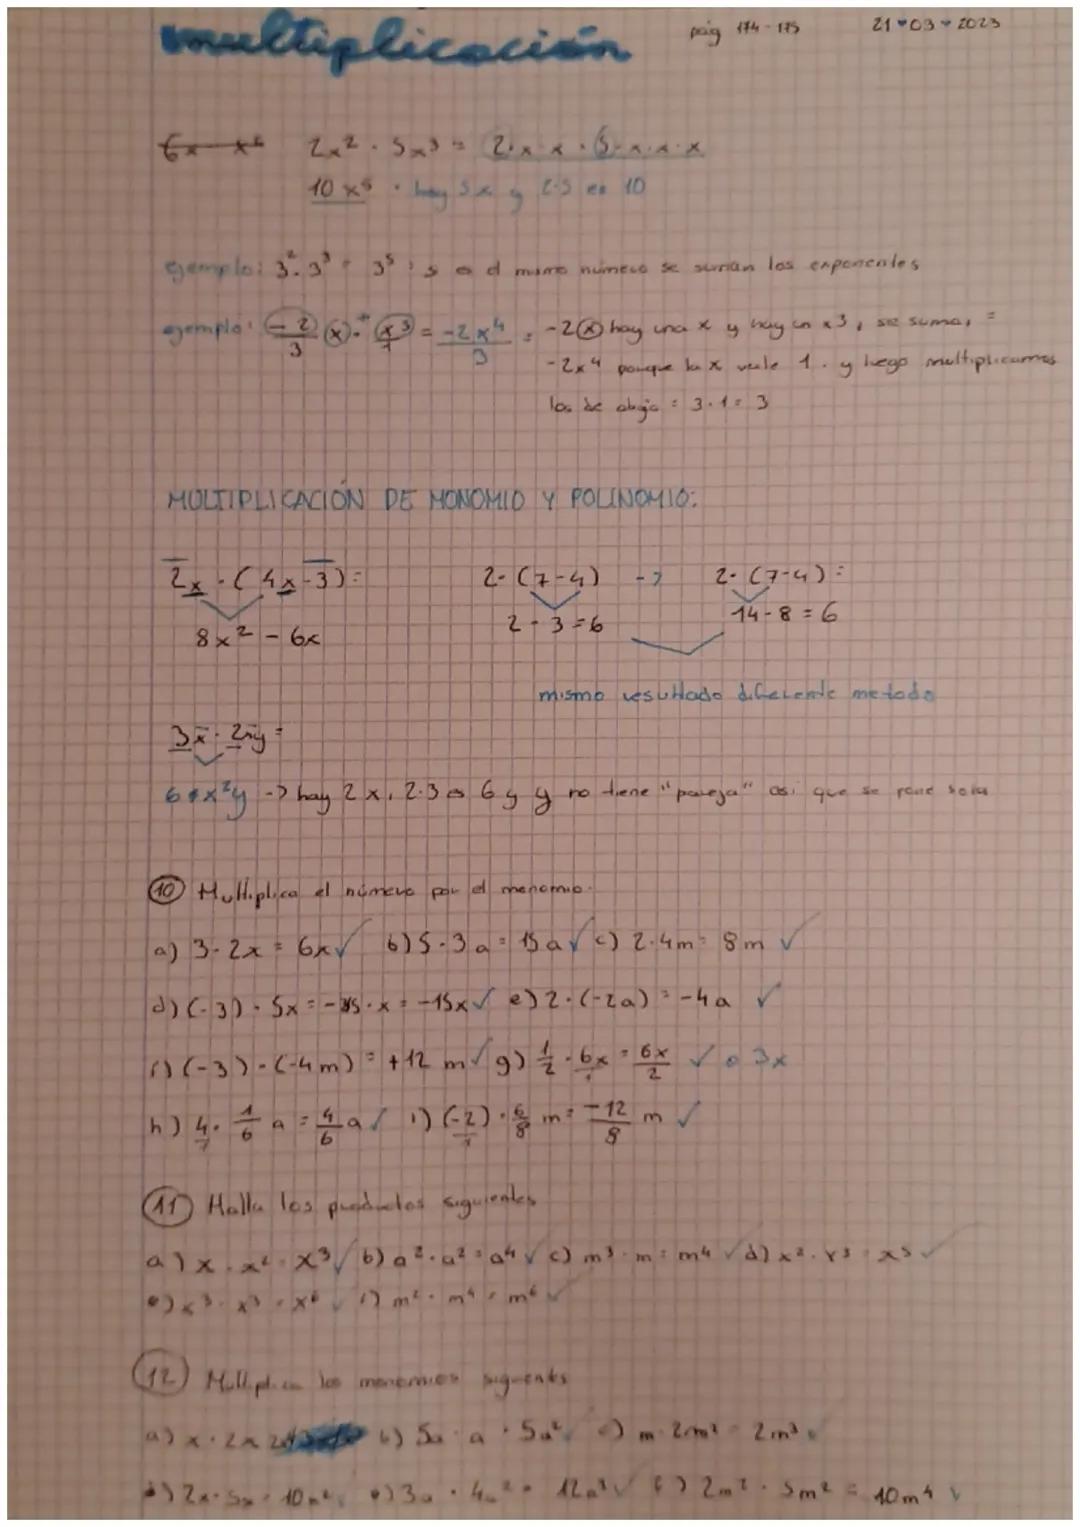 multiplicación pág 174-175 21-03-2023
6x x² 2x² · 5x³ = 2·x·x · 5·x·x·x
10x⁵ · hay 5x y 2·5 es 10
ejemplo: 3² · 3³ = 3⁵ : si es el mismo número se suman los exponentes
ejemplo: -2/3 x · x³/1 = -2x⁴/3 = -2x hay una x y hay un x3, se suma, =
-2x⁴ porque la x vale 1. y luego multiplicamos
los de abajo = 3·1 = 3
MULTIPLICACIÓN DE MONOMIO Y POLINOMIO:
2x · (4x-3) = 2·(7-4) -> 2·(7-4) =
8x² - 6x 2·3=6 14-8=6
mismo resultado diferente metodo
3x · 2xy =
6x²y -> hay 2x, 2·3 es 6 y y no tiene "pareja" asi que se pone sola
10 Multiplica el número por el monomio.
a) 3·2x = 6x ✓ b) 5·3a = 15a ✓ c) 2·4m = 8m ✓
d) (-3)·5x = -15·x = -15x ✓ e) 2·(-2a) = -4a ✓
f) (-3)·(-4m) = +12m ✓ g) 1/2 · 6x/1 = 6x/2 ✓ o 3x
h) 4/1 · 1/6 a = 4/6 a ✓ i) (-2)/1 · 6/8 m = -12/8 m ✓
11 Halla los productos siguientes
a) x · x² = x³ ✓ b) a² · a² = a⁴ ✓ c) m³ · m = m⁴ ✓ d) x² · x³ = x⁵ ✓
e) x³ · x³ = x⁶ ✓ f) m² · m⁴ = m⁶ ✓
12 Multiplica los monomios siguientes
a) x · 2x b) 5a · a = 5a² ✓ c) m · 2m² = 2m³ ✓
d) 2x · 5x = 10x² ✓ e) 3a · 4a² = 12a³ ✓ f) 2m² · 5m² = 10m⁴ ✓